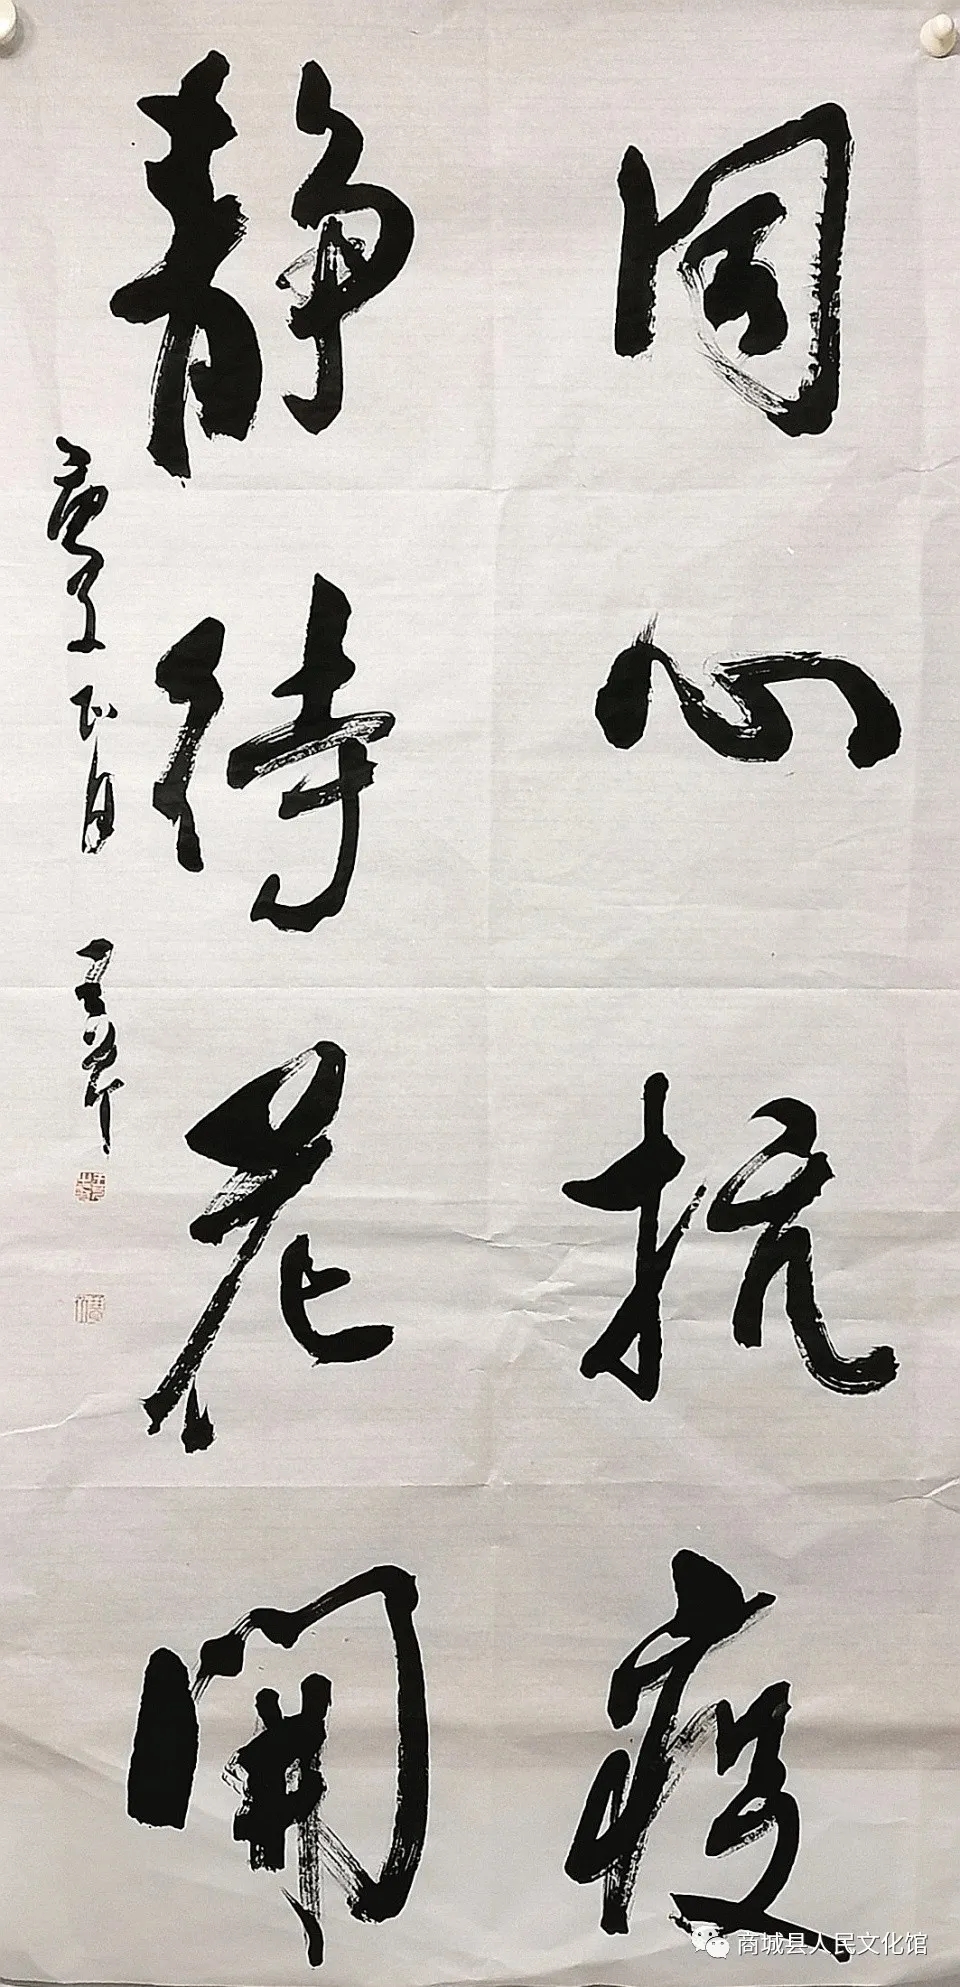 同心抗疫
静待花開
庚子正月
商城县人民文化馆